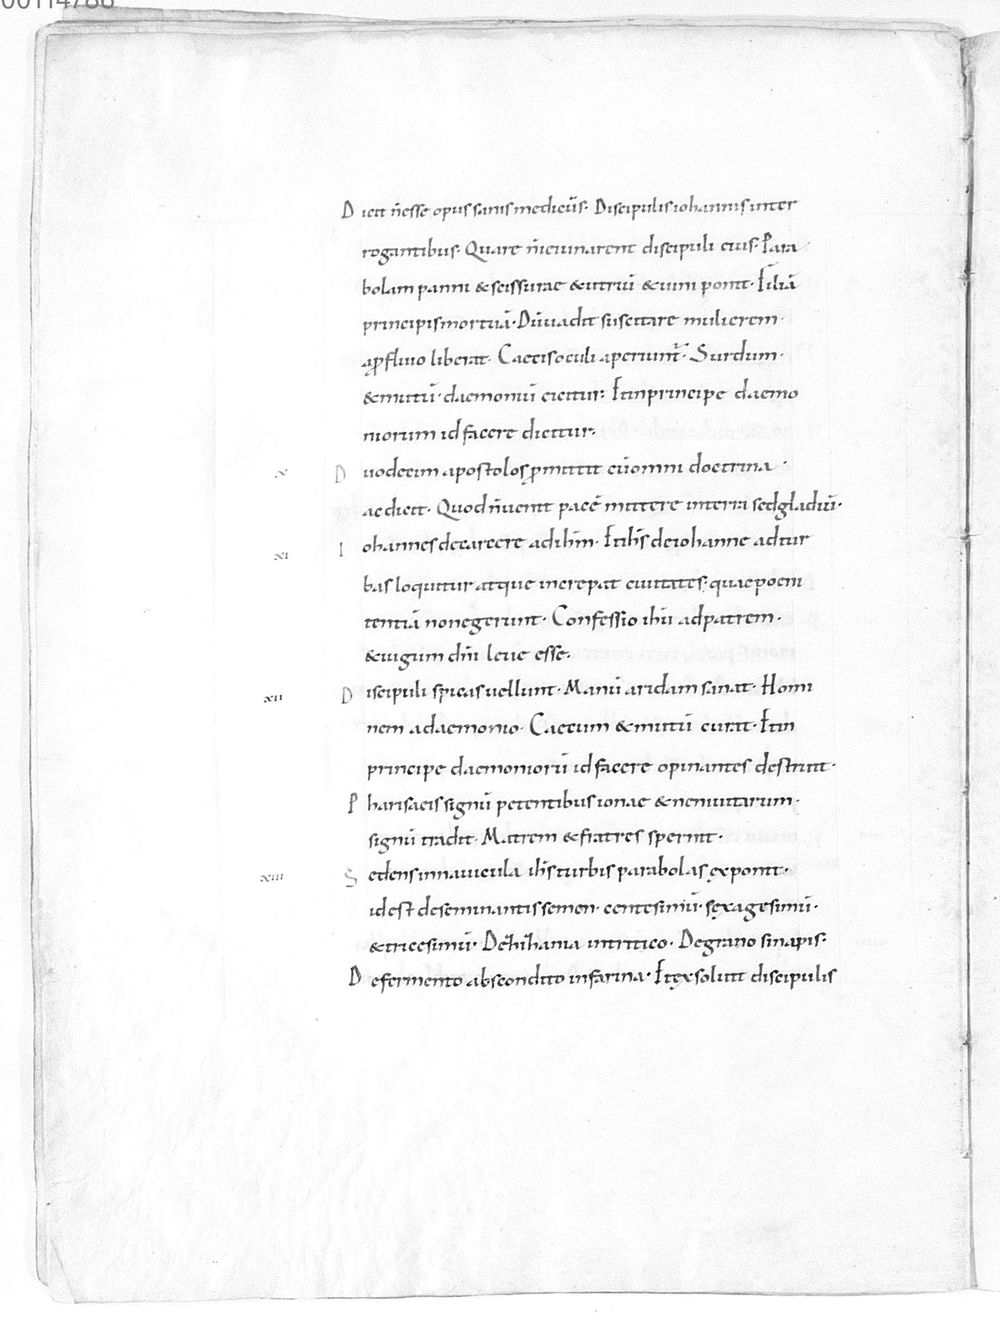 00114786
Dicit n̄ esse opus sanis medicūs· Discipulis iohannis inter
rogantibus· Quare n̄ ieiunarent discipuli eius· Para
bolam panni & scissurae & utriū & uini ponit· Filiā
principis mortuā· Dū uadit suscitare mulierem·
a ꝓfluuio liberat· Caecis oculi aperiunt̄· Surdum·
& mutū· daemoniū eicitur· Et in principe daemo
niorum id facere dicitur·
x Duodecim apostolos ꝓmittit cū omni doctrina·
ac dicit· Quod n̄ uenit pacē mittere in terrā sed gladiū·
xi Iohannes de carcere ad ihm̄· Et ih̄s de iohanne ad tur
bas loquitur atque increpat ciuitates· quae poeni
tentiā non egerunt· Confessio ihū ad patrem·
& iugum dn̄i leue esse·
xii Discipuli spicas uellunt· Manū aridam sanat· Homi
nem a daemonio· Caecum & mutū curat· Et in
principe daemoniorū id facere opinantes destruit·
Pharisaeis signū petentibus ionae & neniuitarum·
signū tradit· Matrem & fratres spernit·
xiii Sedens in nauicula ih̄s turbis parabolas exponit·
id est de seminantis semen· centesimū· sexagesimū·
& tricesimū· De zizania in tritico· De grano sinapis·
De fermento abscondito in farina· Et exsoluit discipulis